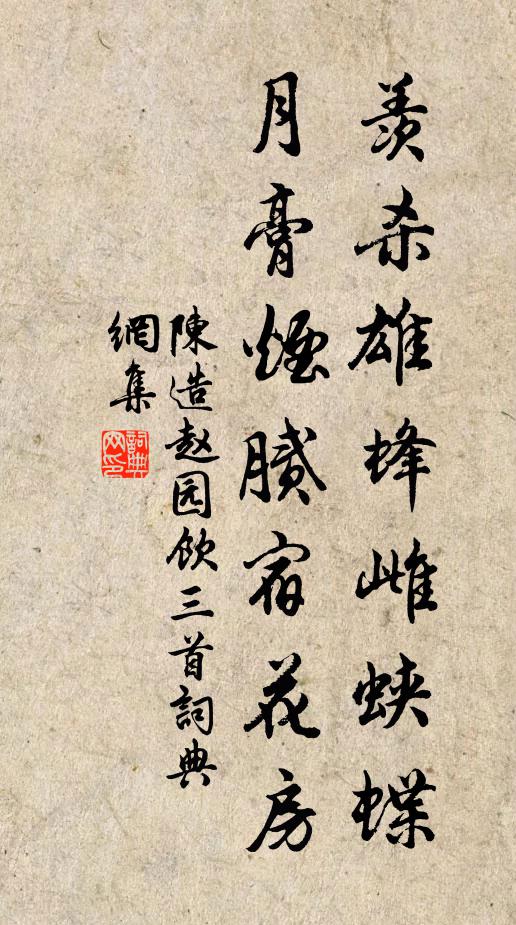 羡杀雄蜂雌蛱蝶
月膏烟腻宿花房
陳造赵园饮三首詞典
網集
詞典
网印